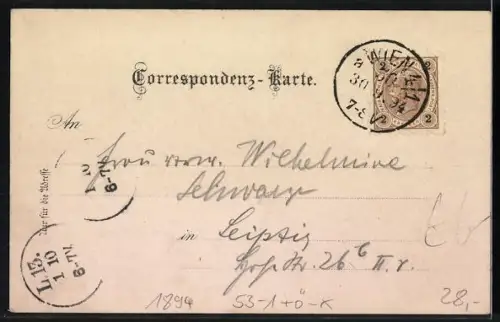 Correspondenz-Karte.
WIEN 4/1
30 9 94
7-8 V
2 2
2 2
An
Frau verw. Wilhelmine
Schwarz
in Leipzig
Nur für die Adresse
26 II. r.
10
6-7V.
L.13.
1 10
6-7V.
1894 53-1+Ö-K 28,-